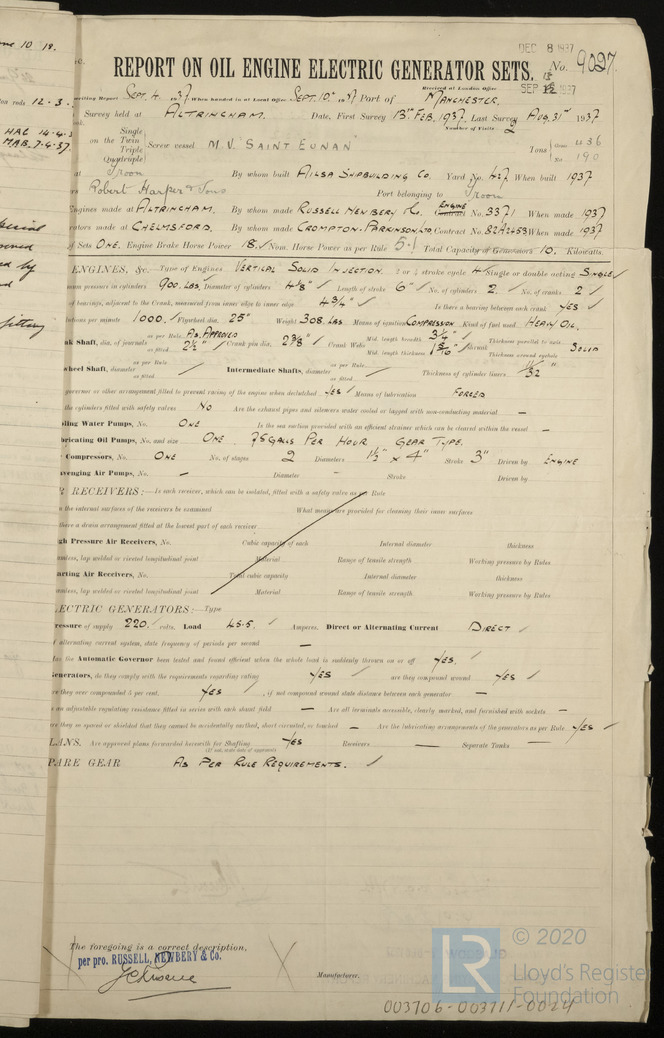 DEC 8 1937
REPORT ON OIL ENGINE ELECTRIC GENERATOR SETS. No. 9027.
Received at London Office SEP 1937
writing Report Sept. 4. 1937 When handed in at Local Office Sept. 10th 1937 Port of MANCHESTER.
Survey held at ALTRINCHAM. Date, First Survey 13th FEB, 1937. Last Survey AUG. 31st 1937
Number of Visits 2
on the Single Twin Triple Quadruple Screw vessel M.V. SAINT EUNAN Tons Gross 436 Net 190
at Troon By whom built AILSA SHIPBUILDING CO. Yard No. 427 When built 1937
Robert Harper & Sons Port belonging to Troon
Engines made at ALTRINCHAM. By whom made RUSSELL NEWBERY & Co. ENGINE Contract No. 3371 When made 1937
rators made at CHELMSFORD. By whom made CROMPTON-PARKINSON LTD. Contract No. 82A2453 When made 1937
of Sets ONE. Engine Brake Horse Power 18. Nom. Horse Power as per Rule 5.1 Total Capacity of Generators 10. Kilowatts.
ENGINES, &c.—Type of Engines VERTICAL SOLID INJECTION. 2 or 4 stroke cycle 4 Single or double acting SINGLE
mum pressure in cylinders 900. LBS. Diameter of cylinders 4 1/8" Length of stroke 6" No. of cylinders 2. No. of cranks 2
of bearings, adjacent to the Crank, measured from inner edge to inner edge 4 3/4" Is there a bearing between each crank YES
lutions per minute 1000. Flywheel dia. 25" Weight 308 LBS Means of ignition COMPRESSION Kind of fuel used HEAVY OIL.
nk Shaft, dia. of journals as per Rule AS APPROVED as fitted 2 1/2" Crank pin dia. 2 3/8" Crank Webs Mid. length breadth 3 1/4" Mid. length thickness 1 5/16" shrunk Thickness parallel to axis Thickness around eyehole SOLID
wheel Shaft, diameter as per Rule as fitted Intermediate Shafts, diameter as per Rule as fitted Thickness of cylinder liners 11/32"
governor or other arrangement fitted to prevent racing of the engine when declutched YES Means of lubrication FORCED
the cylinders fitted with safety valves NO Are the exhaust pipes and silencers water cooled or lagged with non-conducting material —
ling Water Pumps, No. ONE Is the sea suction provided with an efficient strainer which can be cleared within the vessel —
bricating Oil Pumps, No. and size ONE. 75 GALLS PER HOUR GEAR TYPE.
Compressors, No. ONE No. of stages 2 Diameters 1 1/2" x 4" Stroke 3" Driven by ENGINE
avenging Air Pumps, No. — Diameter — Stroke Driven by
R RECEIVERS:—Is each receiver, which can be isolated, fitted with a safety valve as per Rule
n the internal surfaces of the receivers be examined What means are provided for cleaning their inner surfaces
there a drain arrangement fitted at the lowest part of each receiver
gh Pressure Air Receivers, No. Cubic capacity of each Internal diameter thickness
amless, lap welded or riveted longitudinal joint Material Range of tensile strength Working pressure by Rules
arting Air Receivers, No. Total cubic capacity Internal diameter thickness
amless, lap welded or riveted longitudinal joint Material Range of tensile strength Working pressure by Rules
ECTRIC GENERATORS:—Type
ressure of supply 220. volts. Load 45.5. Amperes. Direct or Alternating Current DIRECT
f alternating current system, state frequency of periods per second —
as the Automatic Governor been tested and found efficient when the whole load is suddenly thrown on or off YES.
enerators, do they comply with the requirements regarding rating YES are they compound wound YES
re they over compounded 5 per cent. YES , if not compound wound state distance between each generator —
s an adjustable regulating resistance fitted in series with each shunt field — Are all terminals accessible, clearly marked, and furnished with sockets —
are they so spaced or shielded that they cannot be accidentally earthed, short circuited, or touched — Are the lubricating arrangements of the generators as per Rule YES
LANS. Are approved plans forwarded herewith for Shafting YES Receivers — Separate Tanks —
(If not, state date of approval)
PARE GEAR AS PER RULE REQUIREMENTS.
The foregoing is a correct description,
per pro. RUSSELL, NEWBERY & Co.
Manufacturer.
LR © 2020
Lloyd's Register
Foundation
003706-003711-0024